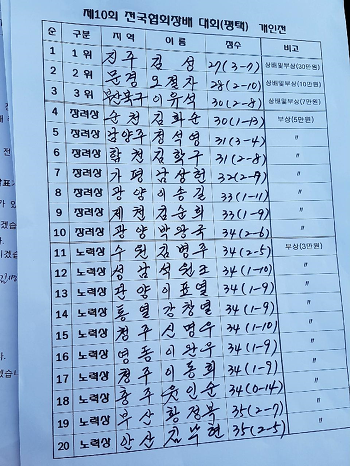 제10회 전국협회장배 대회(평택) 개인전
순 구분 지역 이름 점수 비고
1 1위 진주 김성 27(3-7) 상배및부상(30만원)
2 2위 문경 오절자 28(2-10) 상배및부상(10만원)
3 3위 부산북구 이유석 30(2-8) 상배및부상(7만원)
4 장려상 순천 김화순 30(1-13) 부상(5만원)
5 장려상 남양주 정석영 31(3-4) 〃
6 장려상 합천 김학구 31(2-8) 〃
7 장려상 가평 남상현 32(2-9) 〃
8 장려상 광양 이송길 33(1-11) 〃
9 장려상 제천 김순희 33(1-9) 〃
10 장려상 광양 박왕국 34(2-6) 〃
11 노력상 수원 김병주 34(2-5) 부상(3만원)
12 노력상 성남 석원조 34(1-10) 〃
13 노력상 단양 이표열 34(1-9) 〃
14 노력상 통영 강창열 34(1-9) 〃
15 노력상 청주 신명우 34(1-10) 〃
16 노력상 영동 이완우 34(1-9) 〃
17 노력상 청주 이동희 34(1-9) 〃
18 노력상 충주 윤인순 34(0-14) 〃
19 노력상 부산 황정복 35(2-7) 〃
20 노력상 안산 35(2-5) 〃